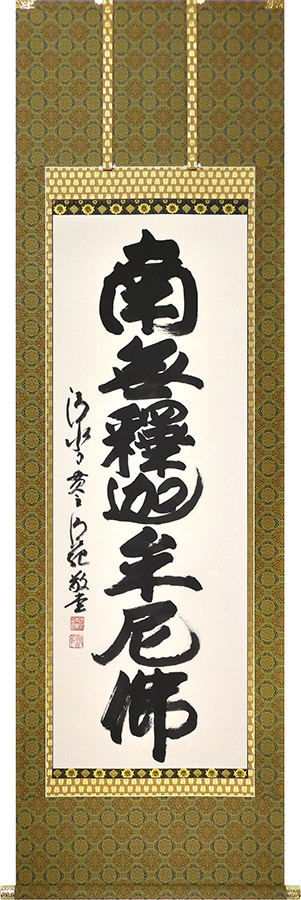 南無釋迦牟尼佛
敬書